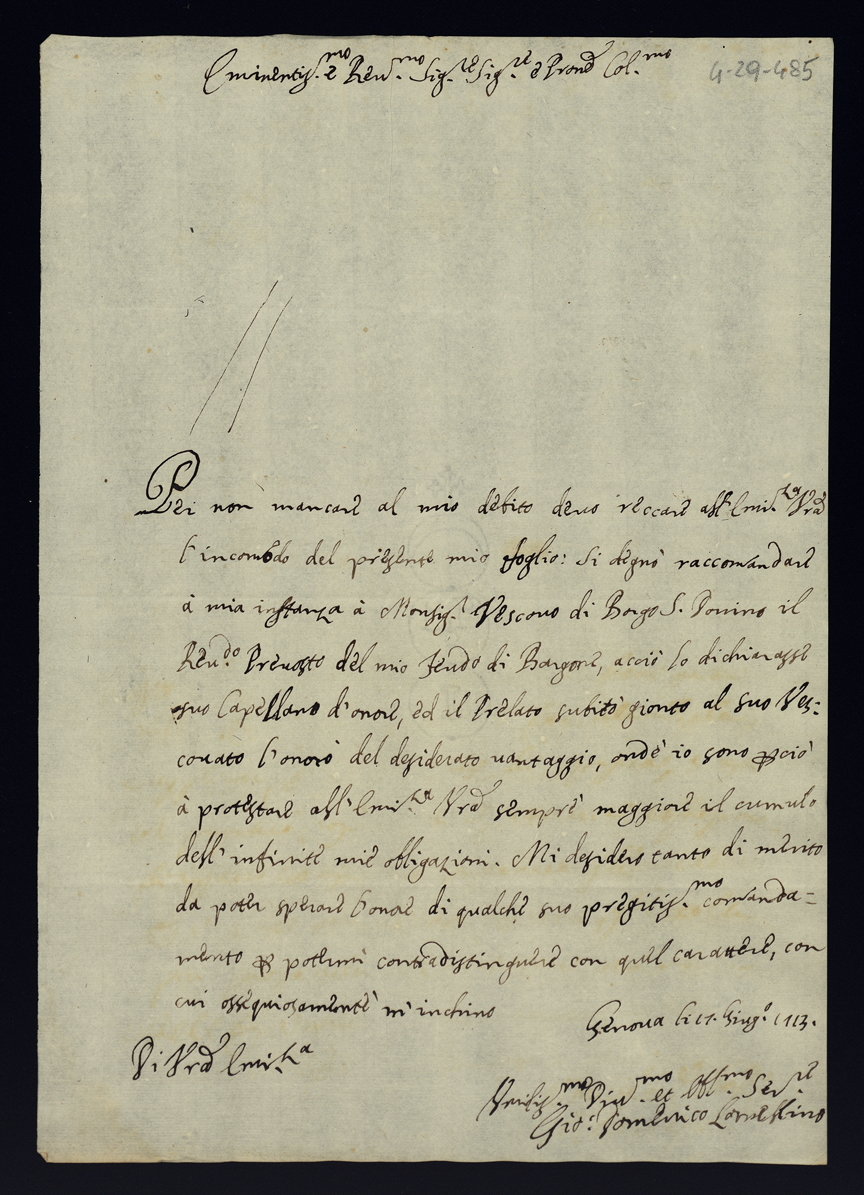 Eminentis.mo e Reu.mo Sig.re Sig.re e Prone Col.mo
4-29-485
Per non mancare al mio debito deuo reccare all'Emi.za Vra
l'incomodo del presente mio foglio: Si degnò raccomandare
à mia instanza à Monsig.r Vescouo di Borgo S. Donino il
Reu.do Preuosto del mio Feudo di Bargone, acciò lo dichiarasse
suo Capellano d'onore, ed il Prelato subito gionto al suo Ves:
couato l'onorò del desiderato uantaggio, onde io sono perciò
à protestare all'Emi.za Vra sempre maggiore il cumulo
dell'infinite mie obligazioni. Mi desidero tanto di merito
da poter sperare l'onore di qualche suo pregitis.mo comanda=
mento per potermi contradistinguere con quel carattere, con
cui ossequiosamente m'inchino
Genova li 17. Giug.o 1713.
Di Vra Emi.za
Vmilis.mo Diu.mo et Obl.mo Ser.re
Gio: Domenico